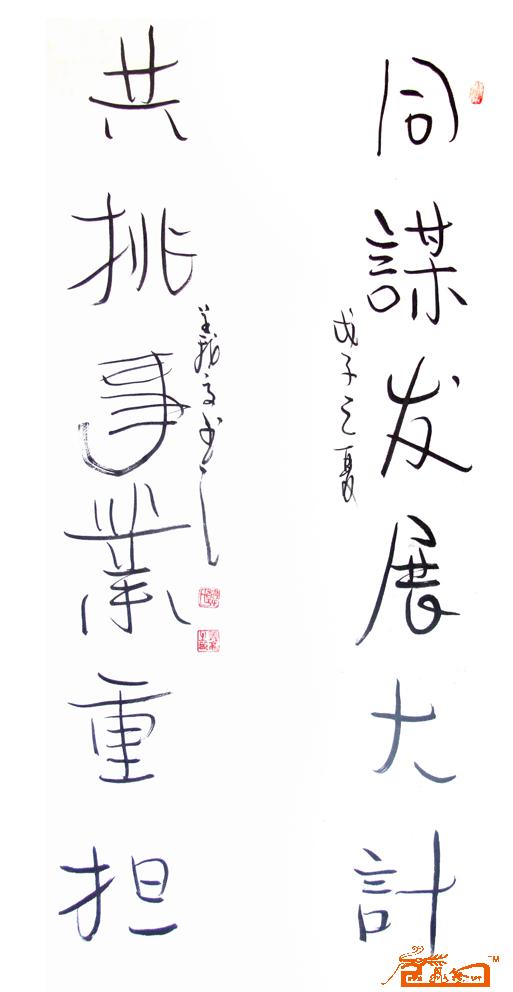 同謀发展大計
戊子之夏
共挑事業重担